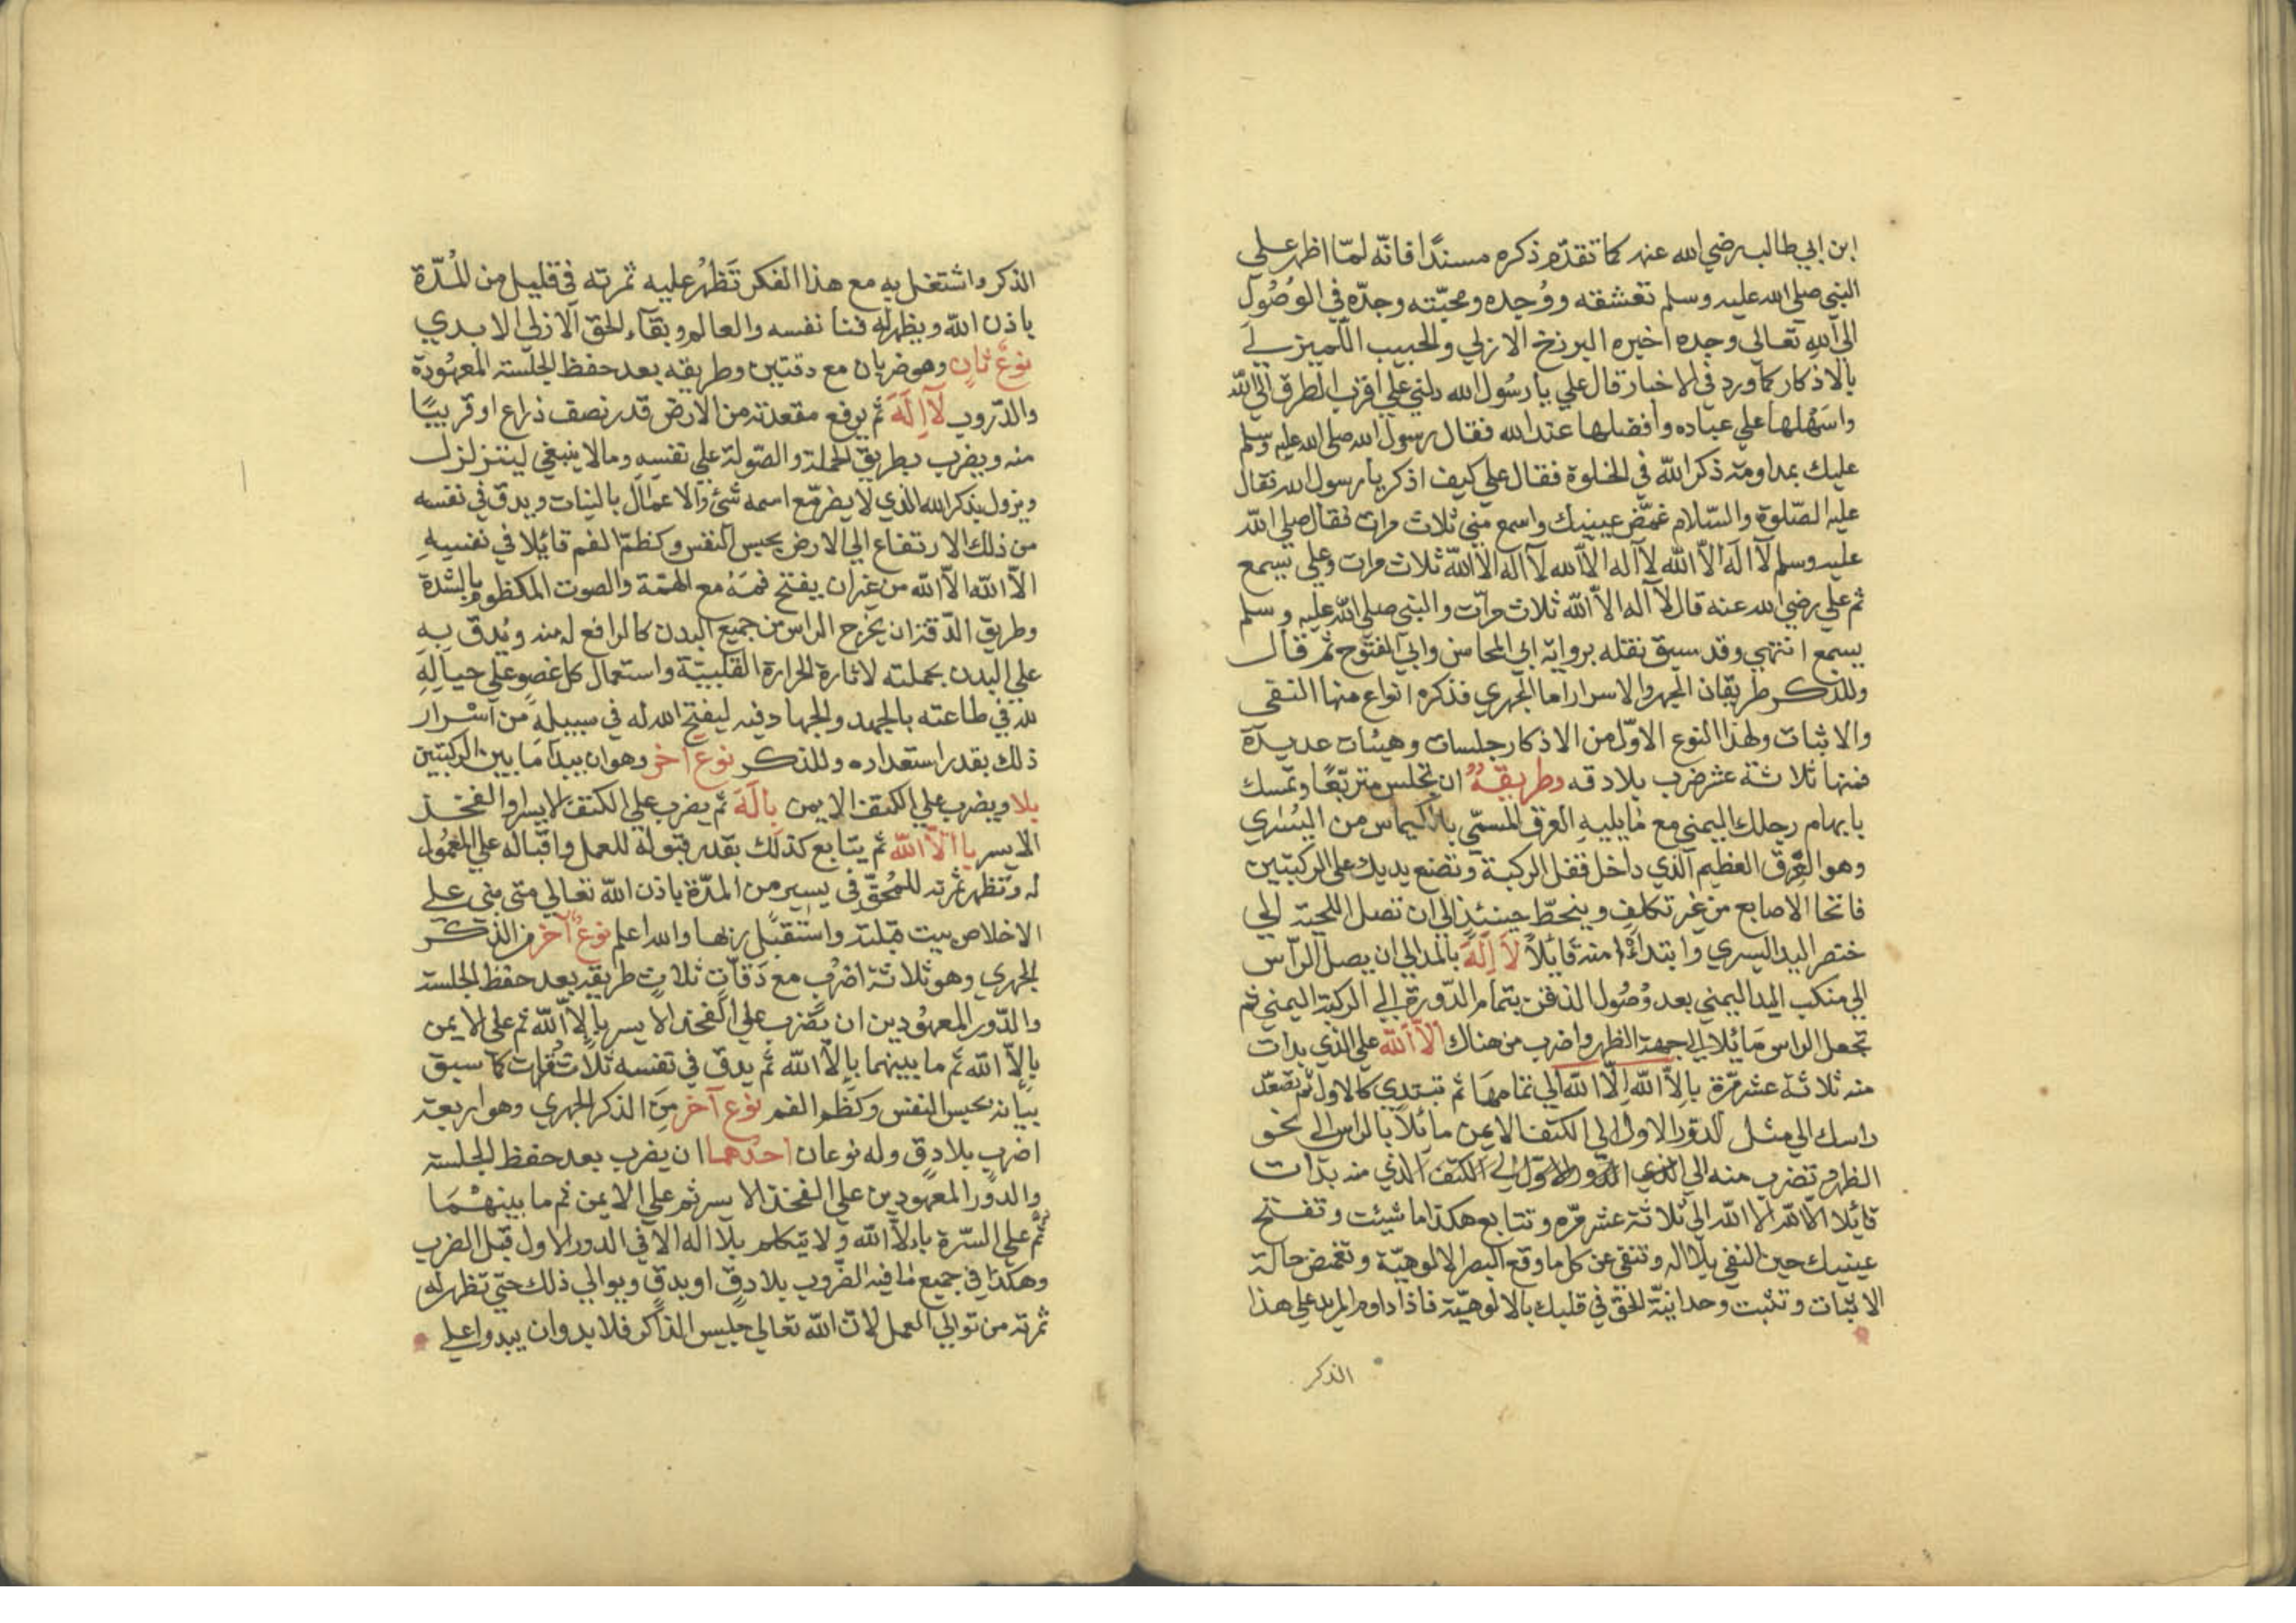 ابن ابي طالب رضي الله عنه كما تقدّم ذكره مسندًا فانّه لمّا اظهر علي
النبي صلي الله عليه وسلم تعشقه ووُجده ومحبّته وجدّه في الوُصُول
الي الله تعالي وجده اخيره البرزخ الازلي والحبيب اللّميزلي
بالاذكار كما ورد في الاخبار قال علي يا رسُول الله دلني علي اقرب الطرق الي الله
واسَهْلها علي عباده وافضلها عند الله فقال رسول الله صلي الله عليه وسلم
عليك بمداومة ذكر الله في الخلوة فقال علي كيف اذكر يا رسول الله فقال
عليه الصّلوة والسّلام غمّض عينيك واسمع مني ثلاث مرات فقال صلي الله
عليه وسلم لآ اله الاّ الله لآ اله الاّ الله لآ اله الاّ الله ثلاث مرات وعلي يسمع
ثم علي رضي الله عنه قال لآ اله الاّ الله ثلاث مرّات والنبي صلي الله عليه وسلم
يسمع انتهي وقد سبق نقله برواية ابي المحاسن وابي الفتوح ثم قال
وللذكر طريقان الجهر والاسرار اما الجهري فذكره انواع منها النفى
والاثبات ولهذا النوع الاوّل من الاذكار جلسات وهيئات عديدة
فمنها ثلاثة عشر ضرب بلا دقه وطريقهُ ان تجلس متربّعًا وتمسك
بابهام رجلك اليمني مع مايليه العرق المسمّي بالكيماس من اليُسْري
وهو العِرق العظيم الّذي داخل قفل الركبة وتضع يديك علي الركبتين
فاتحا الاصابع من غير تكلف وينحطّ حينئذ الي ان تصل اللحية الي
خنصر اليد اليسري وابتداؤه منه قايلاً لاَ اِلَهَ بالمد الي ان يصل الرآس
الي منكب اليد اليمني بعد وُصُول الذقن بتمام الدّورة الي الركبة اليمني ثم
تجعل الراس مَائلا الي جهة الظهر واضرب من هناك الاّ الله علي الذي بدات
منه ثلاثة عشر مرّة بالاّ الله الاّ الله الي تمامهَا ثم تبتدي كالاول ثم تصعّد
راسك الي مثل الدّور الاول الي الكتف الايمن مائلاً بالراس الي نحو
الظهر وتضرب منه الي الذي الدّور الاوّل الي الكتف الذي منه بدات
قايلا الاّ الله الاّ الله الي ثلاثة عشر مرّه وتتابع هكذا ما شيئت وتفتح
عينيك حين النفي بلا اله وتنفي عن كل ما وقع البصر الالوهيّة وتغمض حالة
الاثبات وتثبت وحدانيّة الحق في قلبك بالالوهيّة فاذا داوم المريد علي هذا
الذكر
الذكر واشتغل به مع هذا الفكر تَظهرُ عليه ثمرته في قليل من المُدّة
باذن الله ويظهر له فنا نفسه والعالم وبقآء الحق الازلي الابدي
نوع ثانٍ وهو ضربان مع دقتين وطريقه بعد حفظ الجلسته المعهُودة
والدّروب لآ اِلَهَ ثم يرفع مقعدته من الارض قدر نصف ذراع او قريبًا
منه ويضرب بطريق الحملة والصّولة علي نفسه ومالا ينبغي ليتزلزل
ويزول بذكر الله الذي لا يضر مع اسمه شئ والاعمَال بالنيات ويدق في نفسه
من ذلك الارتفاع الي الارض بحبس النفس وكظمّ الفم قائلا في نفسه
الاّ الله الاّ الله من غير ان يفتح فمَهُ مع الهمّة والصوت المكظوم بالشّدة
وطريق الدّقة ان يخرج الراس من جميع البدن كالرافع له منه ويُدق به
علي البدن بجملته لاثارة الحرارة القلبيّة واستعمال كل عضو علي حياله
لله في طاعته بالجهد والجهاد فيه ليفتح الله له في سبيله من اسْرار
ذلك بقدر استعداده وللذكر نوع اخر وهو ان يبدآ ما بين الركبتين
بلا ويضرب علي الكتف الايمن بالَهَ ثم يضرب علي الكتف الايسر او الفخذ
الايسر باالاّ الله ثم يتابع كذلك بقدر قبوله للعمل واقباله علي المعمُول
له وتظهر ثمرته للمُحقّ في يسير من المدّة باذن الله تعالي متى بنى على
الاخلاص بيت قبلته واستقبل ربّها والله اعلم نوع آخر من الذكر
الجهري وهو ثلاثة اضرُب مع دَقّاتٍ ثلاثٍ طريقه بعد حفظ الجلسته
والدّور المعهُودين ان يَضرب علي الفخذ الايسر بالاّ الله ثم على الايمن
بالاّ الله ثم ما بينهما بالاّ الله ثم يدق في نفسه ثلاث مرات كما سبق
بيَانه بحبس النفس وكظم الفم نوع آخر مِنَ الذكر الجهري وهو اربعة
اضرب بلا دقٍ وله نوعان احدهما ان يضرب بعد حفظ الجلسته
والدور المعهودين علي الفخذ الايسر ثم علي الايمن ثم ما بينهمَا
ثم علي السّرة بالاّ الله ولا يتكلم بلا اله الا في الدور الاول قبل الضرب
وهكذا في جميع ما فيه الضروب بلا دقٍ او بدقٍ ويوالي ذلك حتي تظهر له
ثمرته من توالي العمل لانّ الله تعالي جليس الذاكر فلا بد وان يبدوا علي